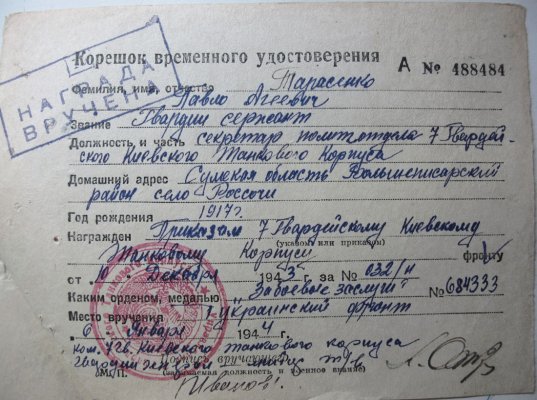 Корешок временного удостоверения А № 488484
НАГРАДА
ВРУЧЕНА
Фамилия, имя, отчество Тарасенко
Павло Агеевич
Звание Гвардии сержант
Должность и часть секретар политотдела 7 Гвардей-
ского Киевского Танкового Корпуса
Домашний адрес Сумская область Велыкописарский
район село Россочи
Год рождения 1917 г.
Награжден Приказом 7 Гвардейскому Киевскому
(указом или приказом)
Танковому Корпусу фронту
от 10 Декабря 1943 г. за № 032/н
Каким орденом, медалью "За боевые заслуги" № 684333
Место вручения 1 Украинский фронт
6 Января 1944 г.
ком. 7 гв. Киевского танкового корпуса
гвардии т/в
Подпись вручающего
М.П. (занимаемая должность и военное звание)
Иванов